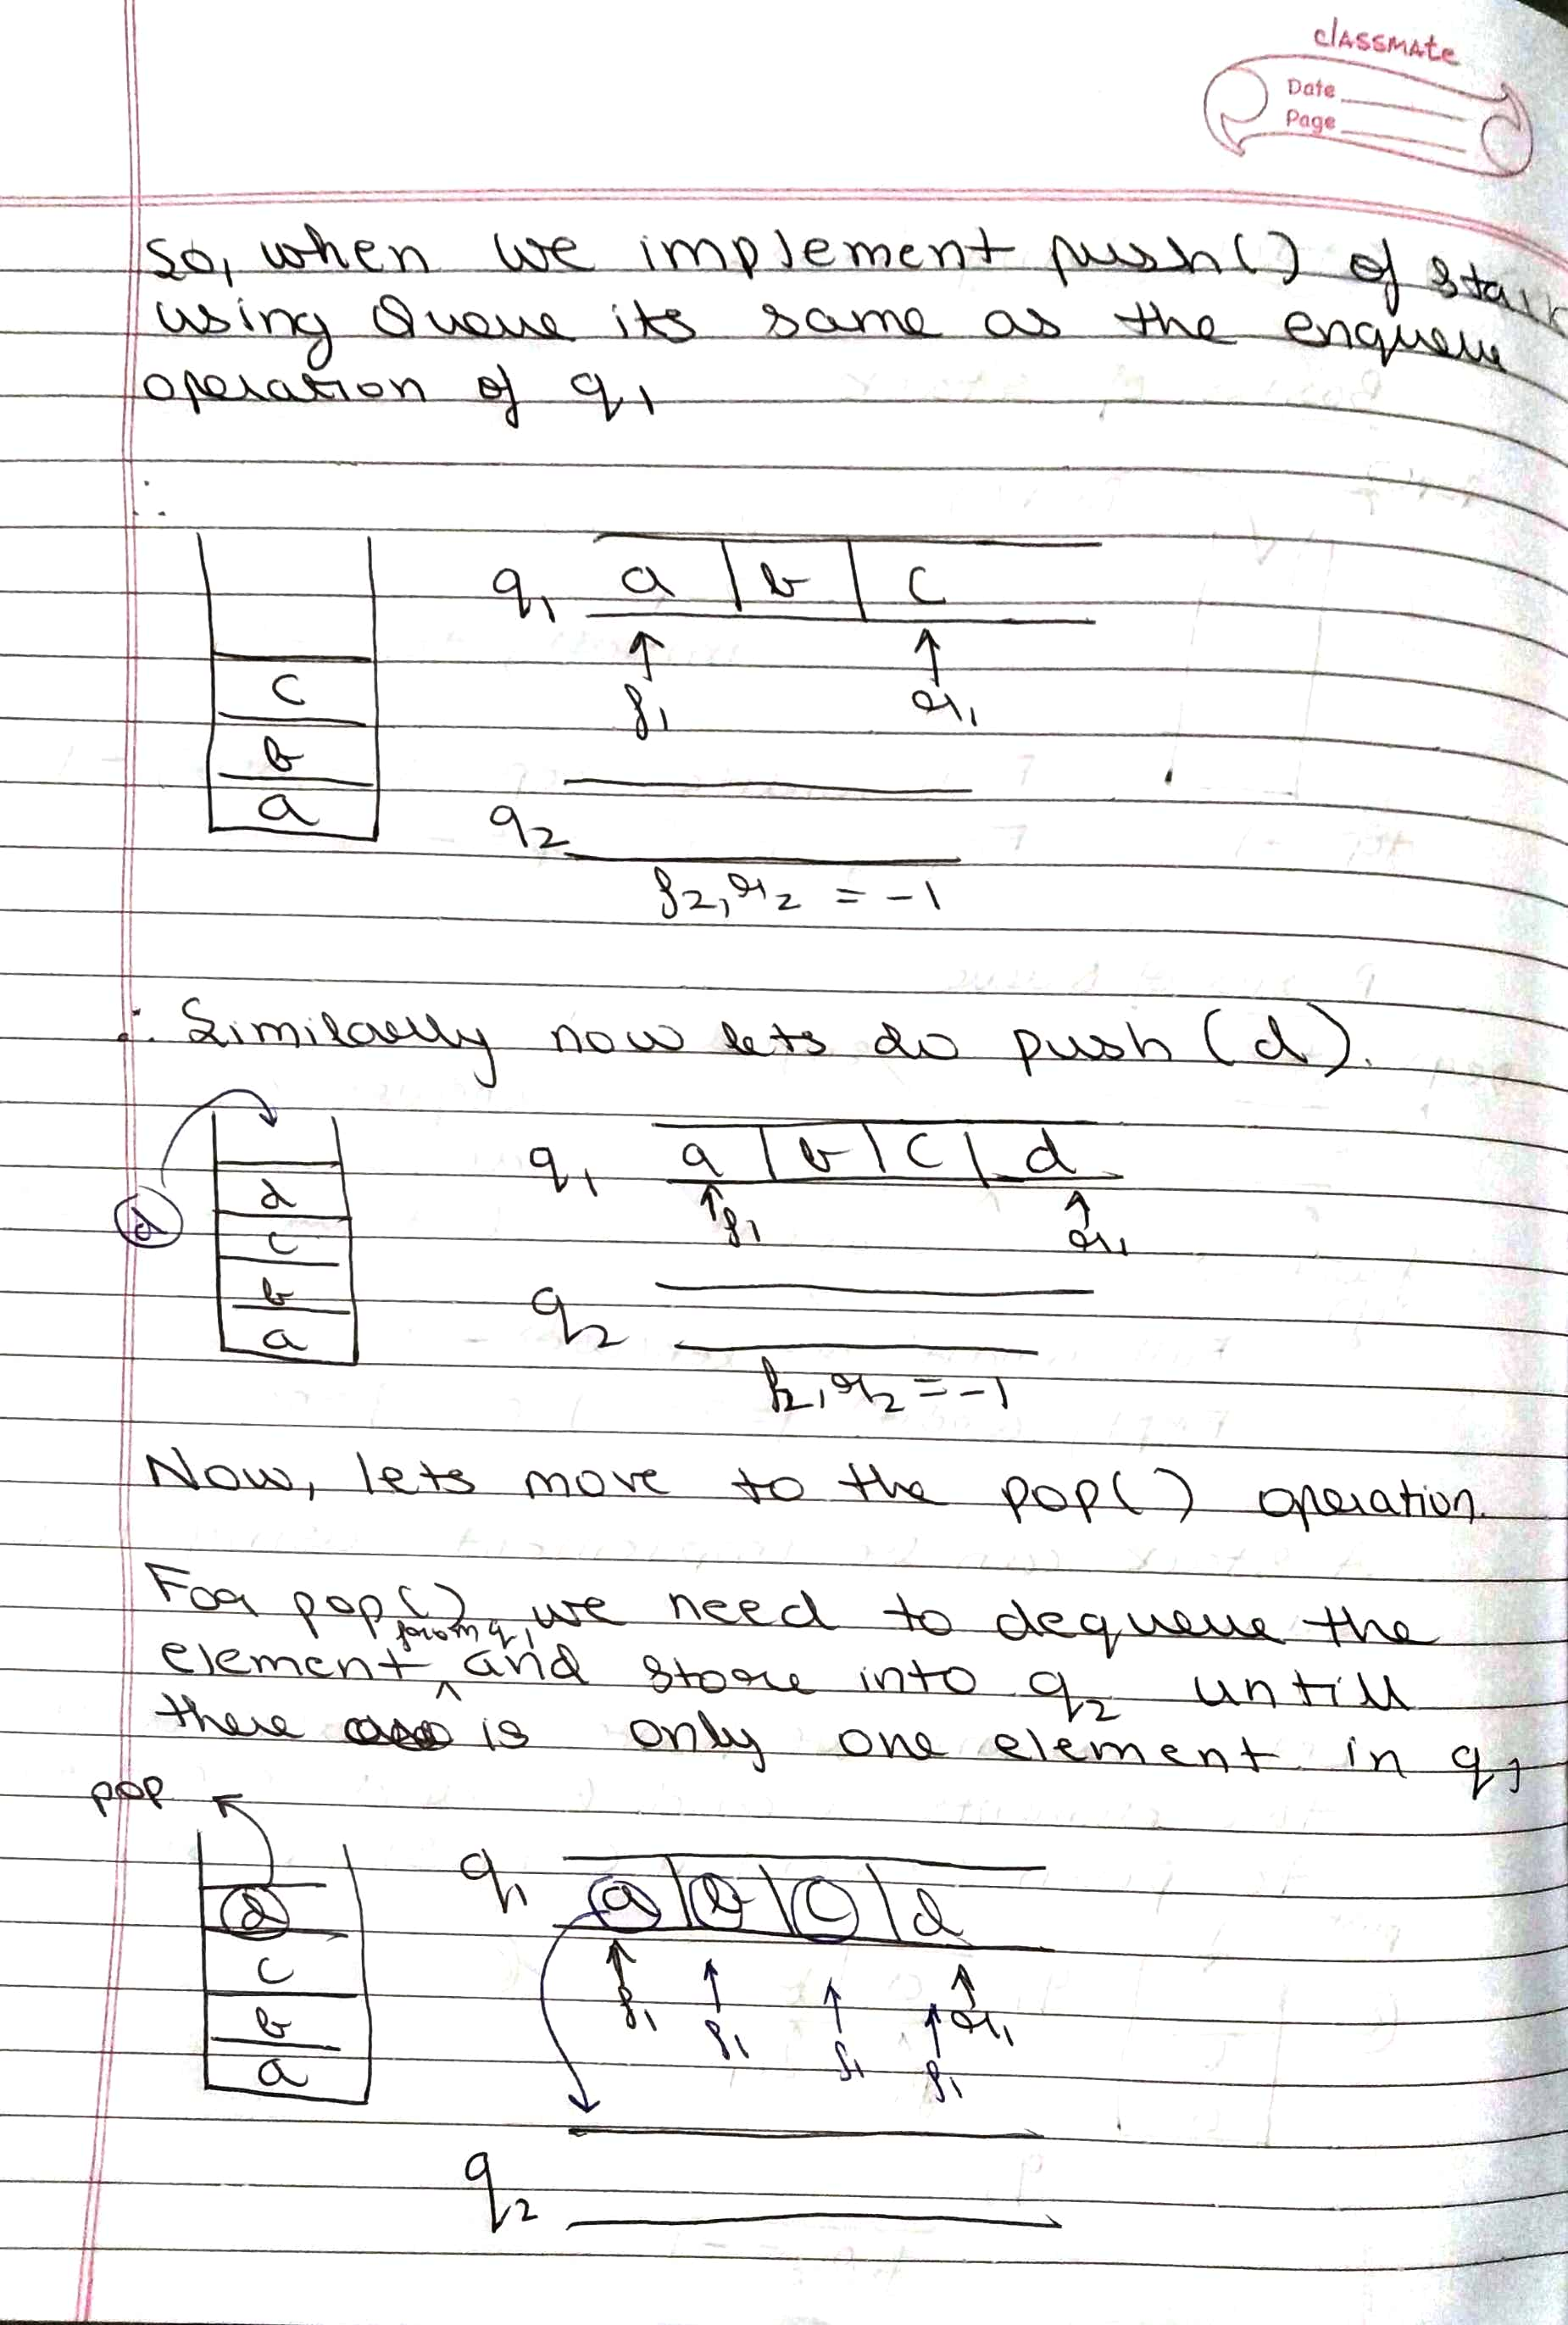 classmate
Date
Page
So, when we implement push() of
using Queue its same as the enqueue
operation of q1
∴
q1 a b c
c
f1 r1
b
a
q2
f2, r2 = -1
∴ Similarly now lets do push (d).
q1 a b c d
d
d
f1 r1
c
b
q2
a
f2, r2 = -1
Now, lets move to the pop() operation.
For pop(), we need to dequeue the
from q1
element ^ and store into q2 untill
there is only one element in q1
pop
q1 a b c d
d
c
f1 f1 f1 f1 r1
b
a
q2